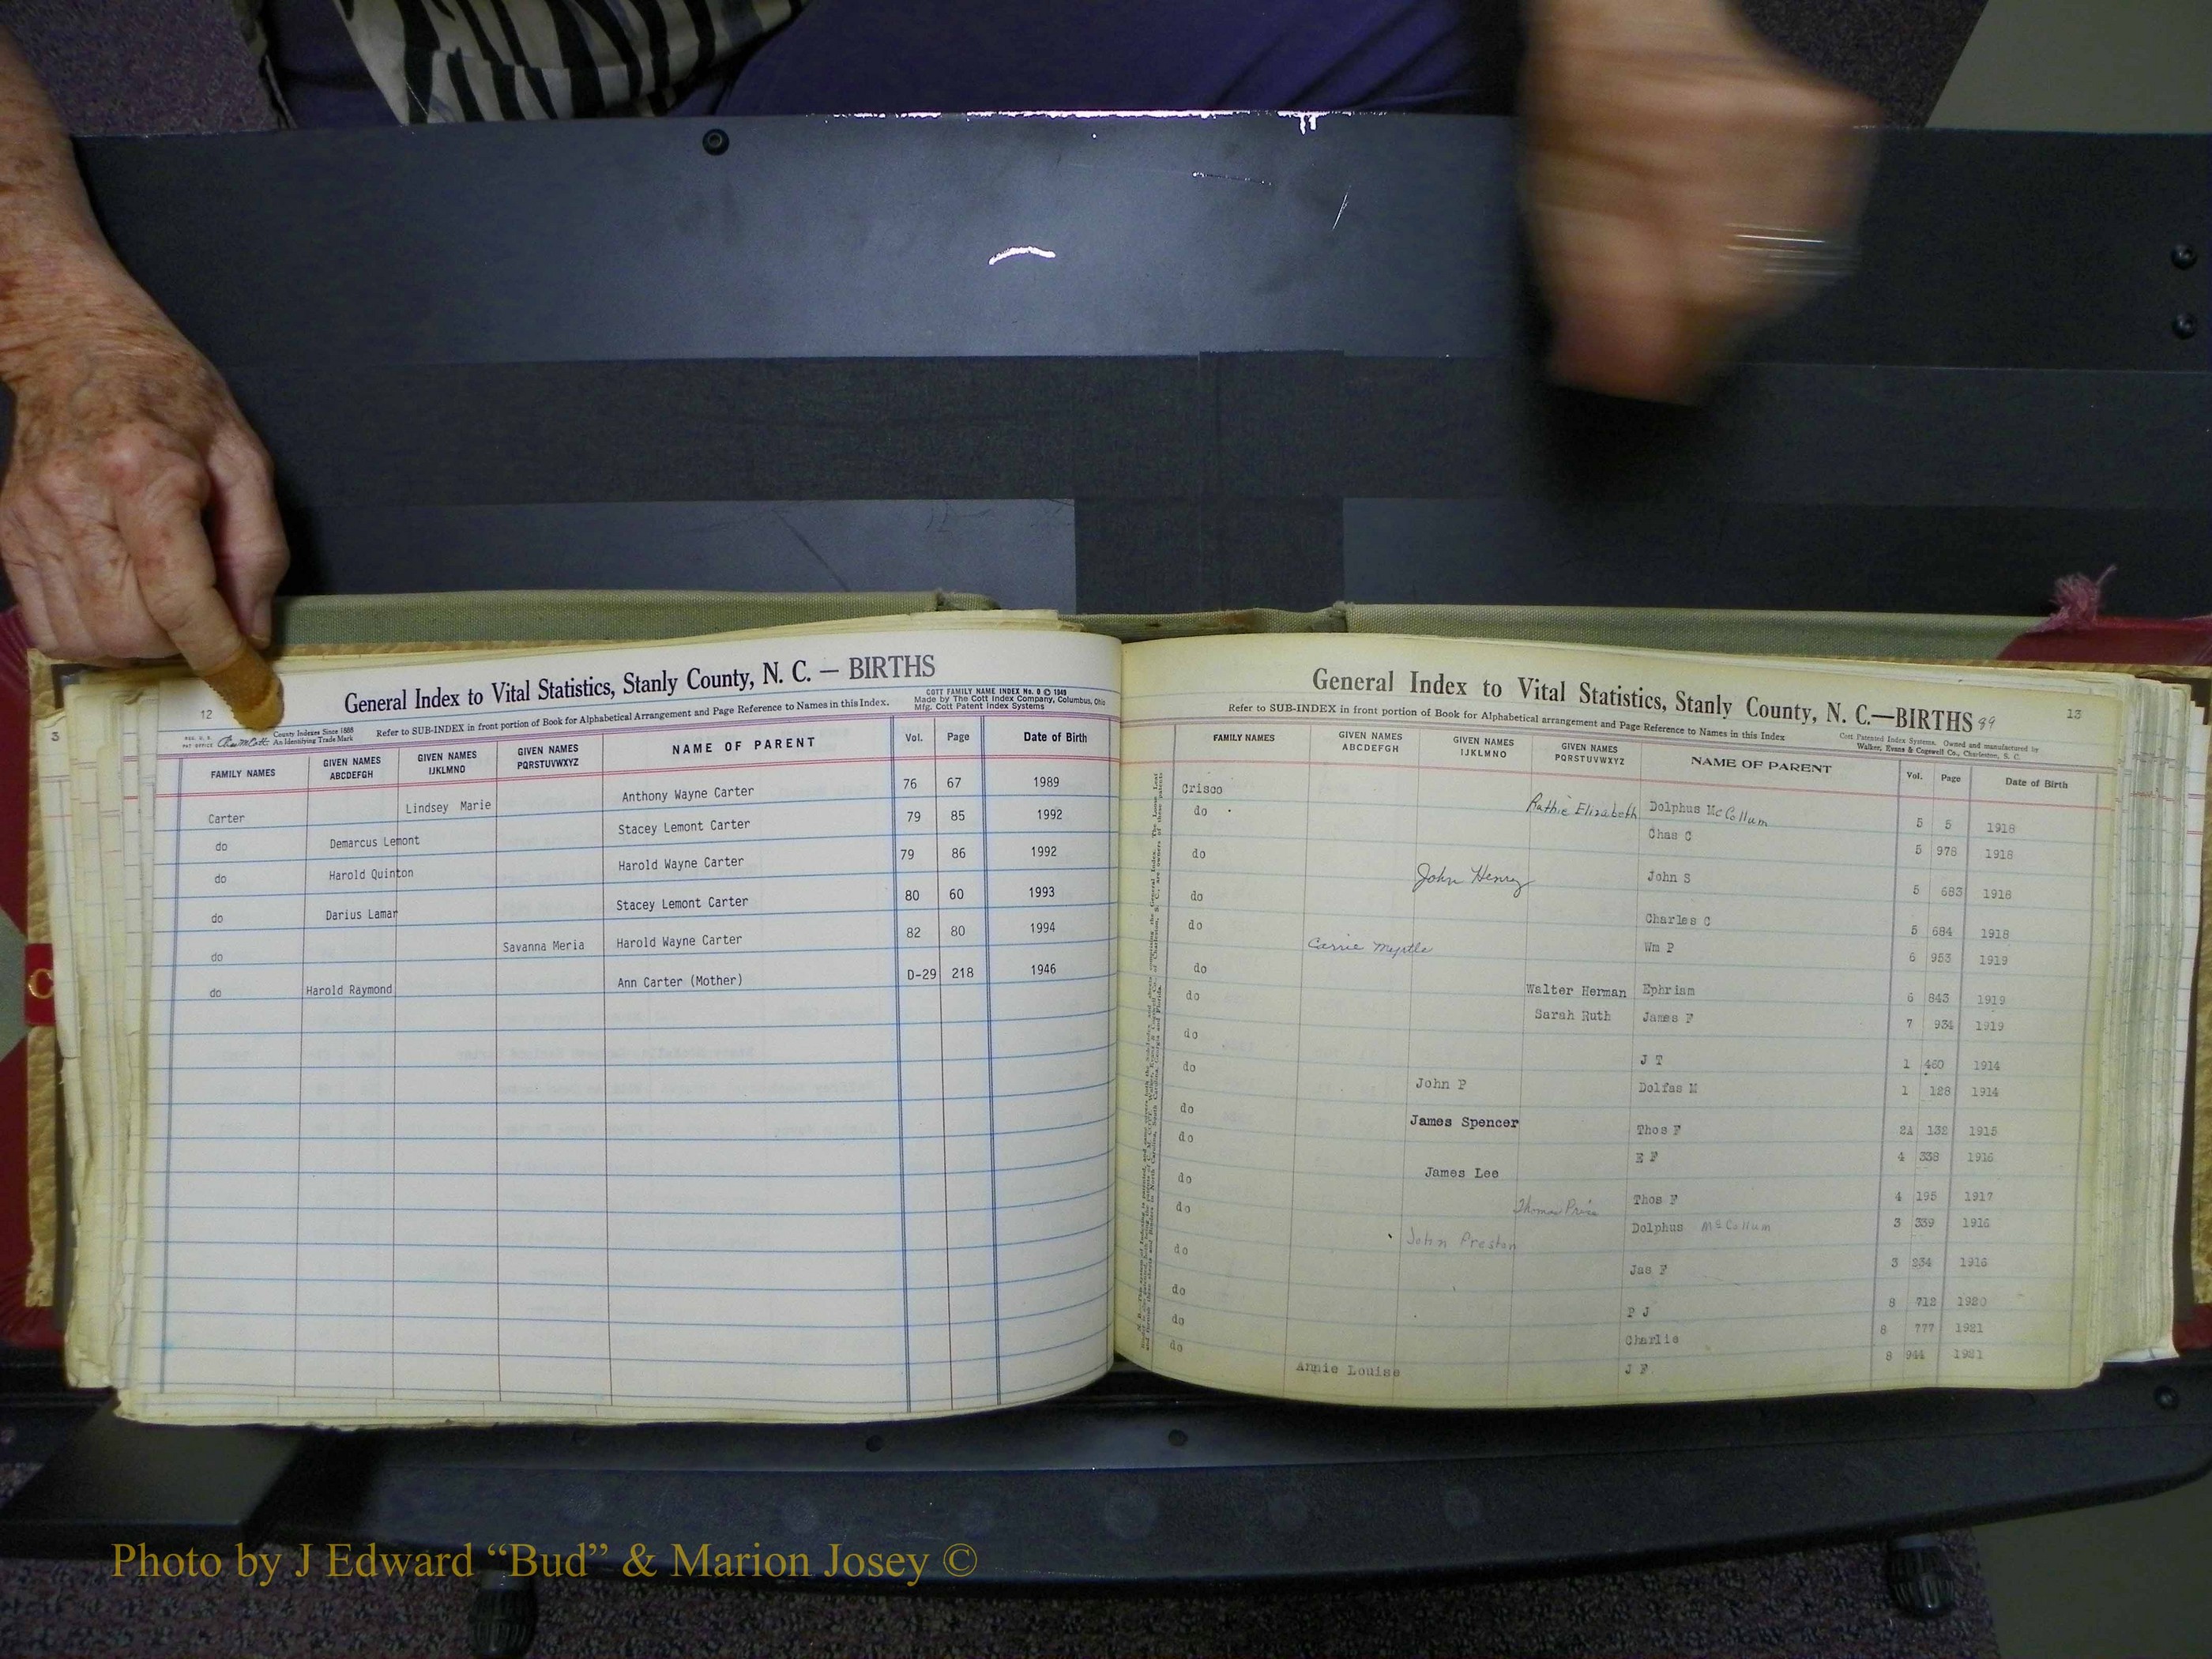 12
General Index to Vital Statistics, Stanly County, N. C. — BIRTHS
COTT FAMILY NAME INDEX No. 0 © 1949
Made by The Cott Index Company, Columbus, Ohio
Mfg. Cott Patent Index Systems
County Indexes Since 1888
An Identifying Trade Mark
Refer to SUB-INDEX in front portion of Book for Alphabetical Arrangement and Page Reference to Names in this Index.
FAMILY NAMES GIVEN NAMES ABCDEFGH GIVEN NAMES IJKLMNO GIVEN NAMES PQRSTUVWXYZ NAME OF PARENT Vol. Page Date of Birth
Carter Lindsey Marie Anthony Wayne Carter 76 67 1989
do Demarcus Lemont Stacey Lemont Carter 79 85 1992
do Harold Quinton Harold Wayne Carter 79 86 1992
do Darius Lamar Stacey Lemont Carter 80 60 1993
do Savanna Meria Harold Wayne Carter 82 80 1994
do Harold Raymond Ann Carter (Mother) D-29 218 1946
3
C
General Index to Vital Statistics, Stanly County, N. C.—BIRTHS 99
13
Refer to SUB-INDEX in front portion of Book for Alphabetical arrangement and Page Reference to Names in this Index
Cott Patented Index Systems. Owned and manufactured by
Walker, Evans & Cogswell Co., Charleston, S. C.
FAMILY NAMES GIVEN NAMES ABCDEFGH GIVEN NAMES IJKLMNO GIVEN NAMES PQRSTUVWXYZ NAME OF PARENT Vol. Page Date of Birth
Crisco Ruthie Elizabeth Dolphus McCollum 5 5 1918
do Chas C 5 978 1918
do John Henry John S 5 683 1918
do Charles C 5 684 1918
do Carrie Myrtle Wm P 6 953 1919
do Walter Herman Ephriam 6 843 1919
do Sarah Ruth James F 7 934 1919
do J T 1 460 1914
do John P Dolfas M 1 128 1914
do James Spencer Thos F 2A 132 1915
do E F 4 338 1916
do James Lee Thos F 4 195 1917
do Thomas Price Dolphus McCollum 3 339 1916
do John Preston Jas F 3 234 1916
do P J 8 712 1920
do Charlie 8 777 1921
do Annie Louise J F 8 944 1921
Photo by J Edward “Bud” & Marion Josey ©